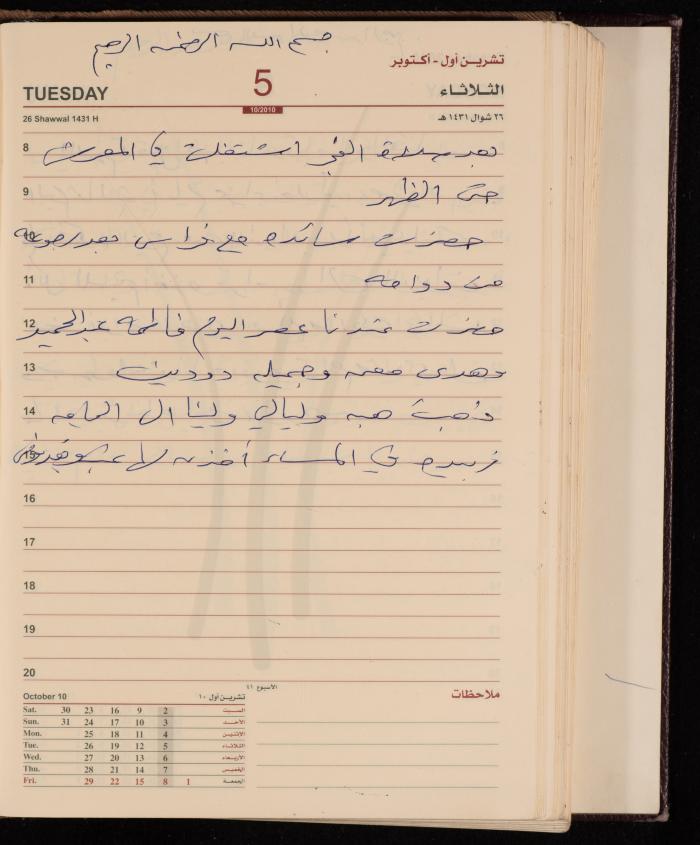 بسم الله الرحمن الرحيم
تشرين أول - أكتوبر
TUESDAY
5
الثلاثاء
10/2010
26 Shawwal 1431 H
٢٦ شوال ١٤٣١ هـ
8 بعد صلاة الفجر اشتغلت في المعرش
9 حتى الظهر
10 حضرت سائده مع فراس بعد رجوعه
11 من دوامه
12 حضرت عندنا عصر اليوم فاطمه عبدالحميد
13 وهدى معمر وجميله دودين
14 ذهبت هبه وليالي ولينا ال
15 في المساء
16
17
18
19
20
الأسبوع ٤١
October 10
تشرين أول ١٠
ملاحظات
Sat. 30 23 16 9 2 السبت
Sun. 31 24 17 10 3 الأحد
Mon. 25 18 11 4 الإثنين
Tue. 26 19 12 5 الثلاثاء
Wed. 27 20 13 6 الأربعاء
Thu. 28 21 14 7 الخميس
Fri. 29 22 15 8 1 الجمعة